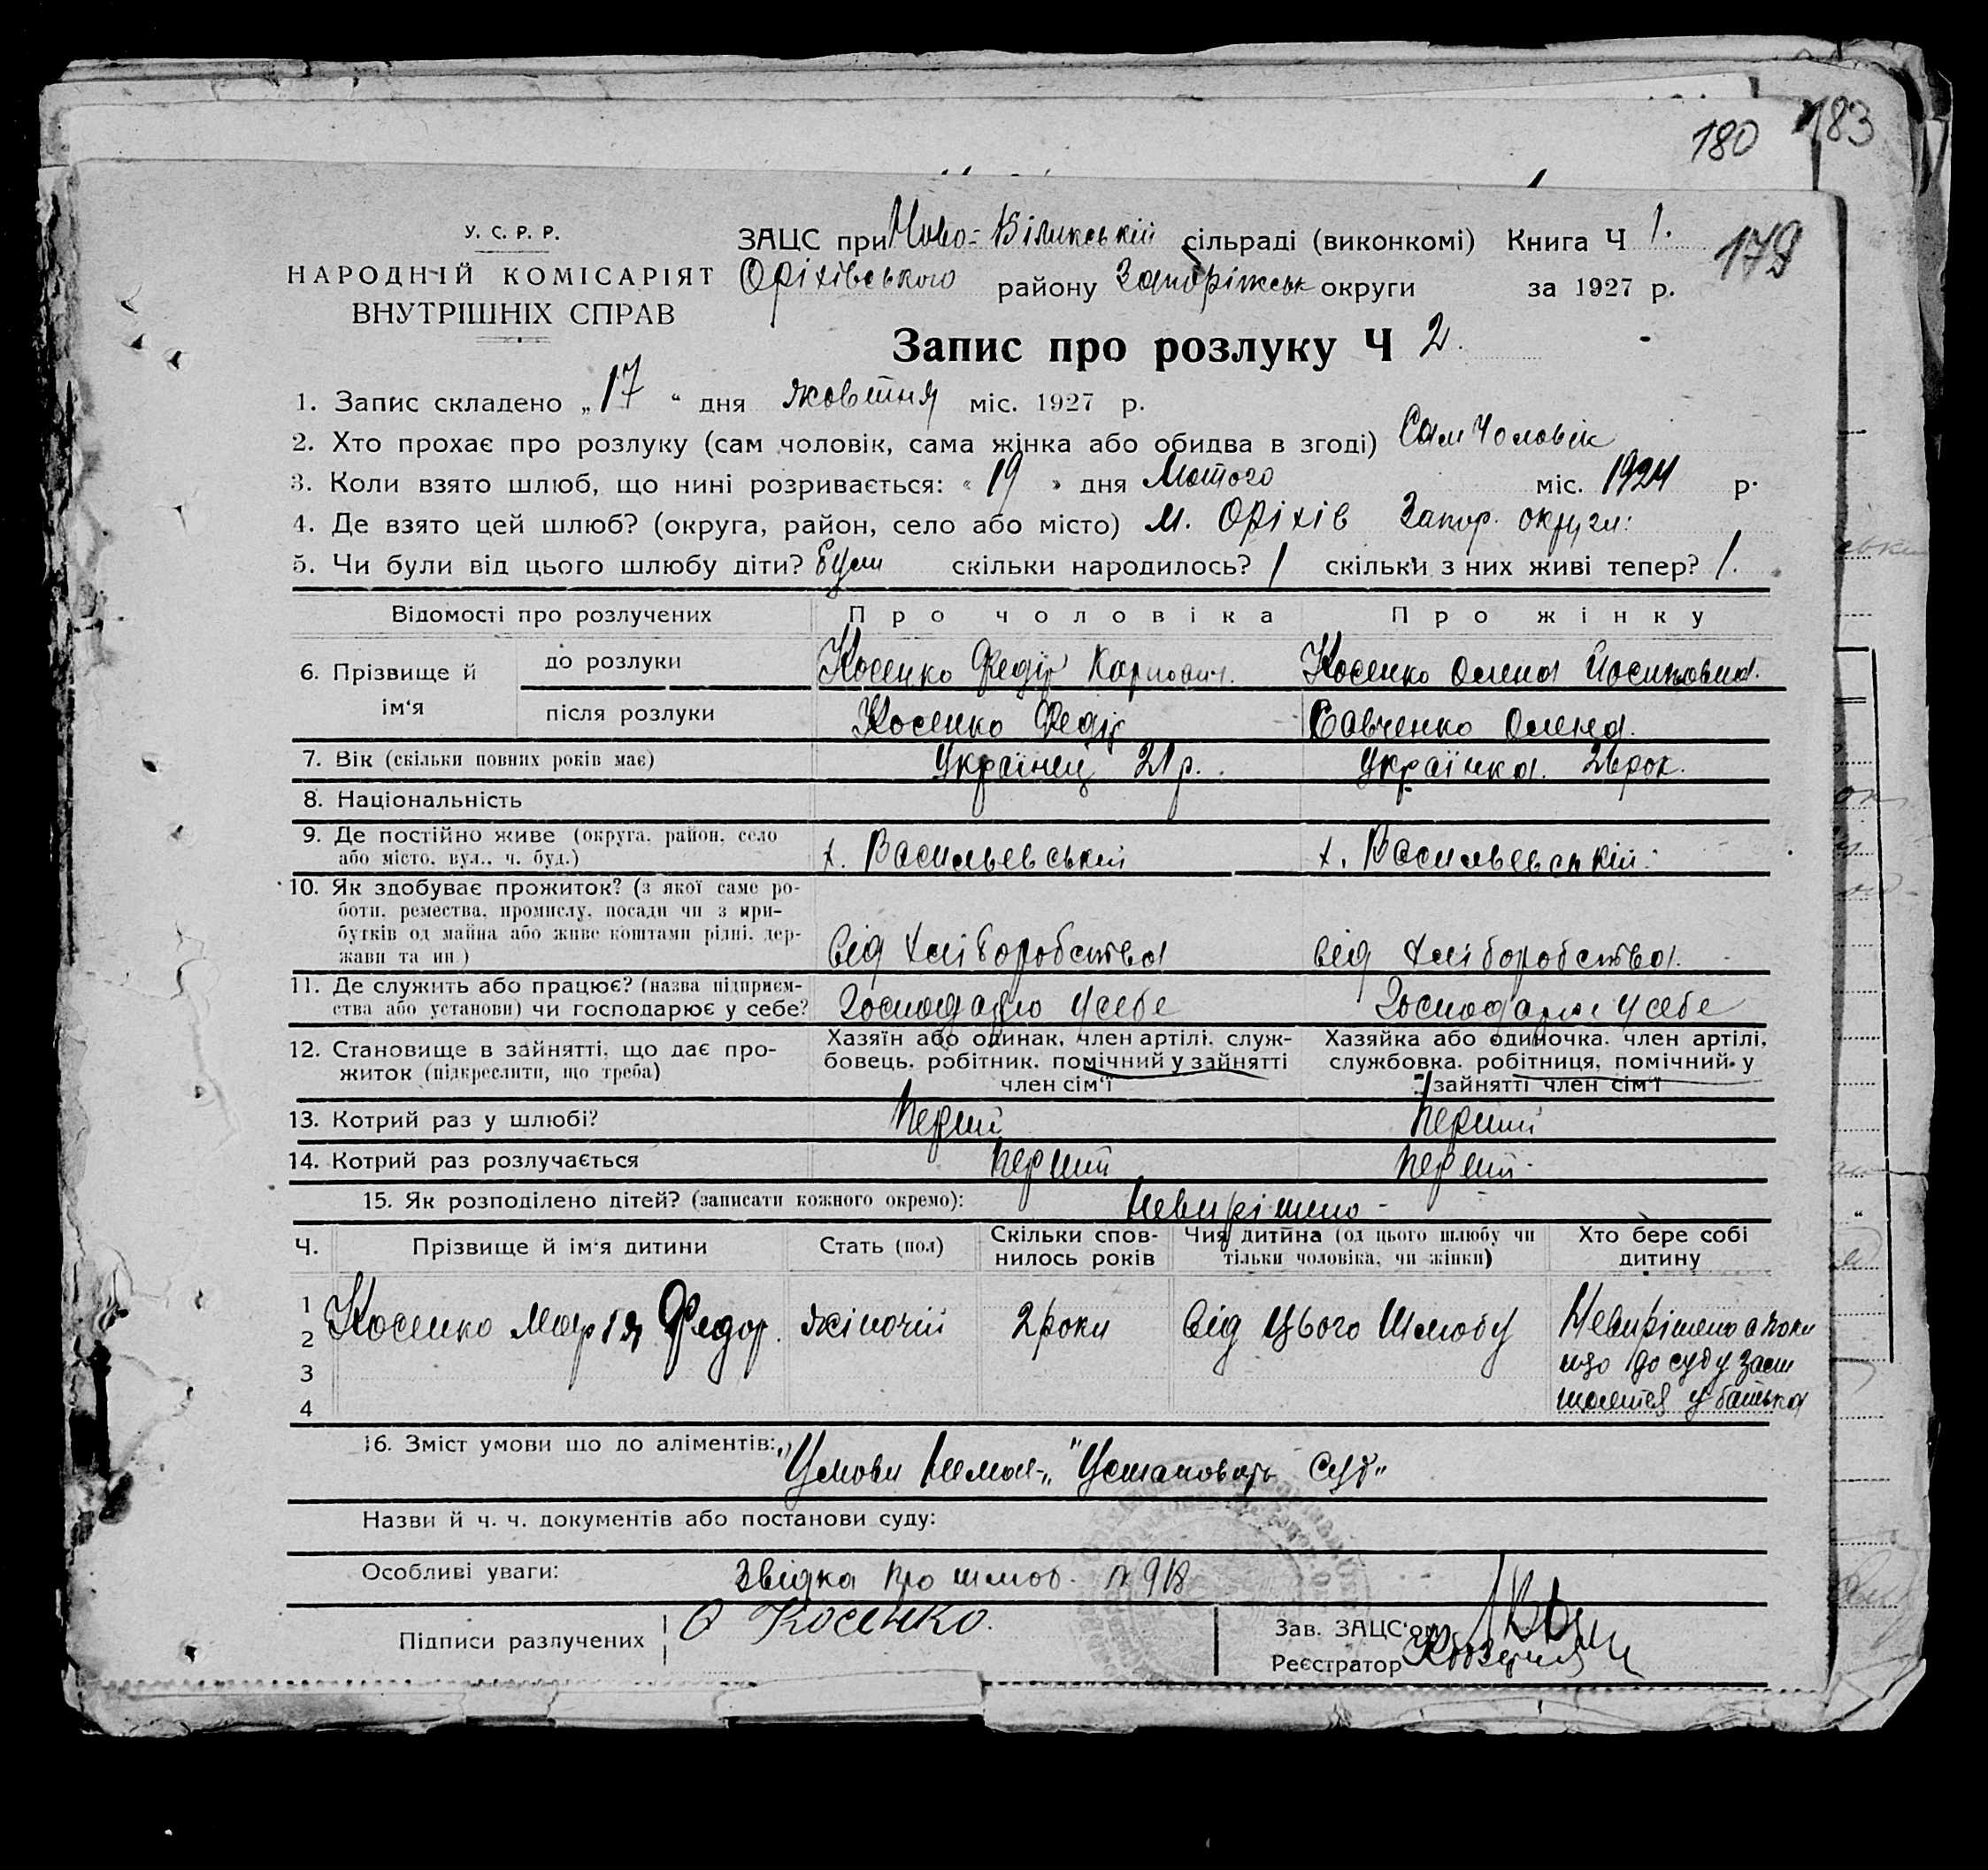 180 183
У. С. Р. Р.
НАРОДНІЙ КОМІСАРІЯТ
ВНУТРІШНІХ СПРАВ
179
ЗАЦС при Ново- сільраді (виконкомі) Книга Ч 1.
Оріхівського району Запоріжськ округи за 1927 р.
Запис про розлуку Ч 2.
1. Запис складено „17“ дня жовтня міс. 1927 р.
2. Хто прохає про розлуку (сам чоловік, сама жінка або обидва в згоді) Сам чоловік
3. Коли взято шлюб, що нині розривається: „19“ дня Лютого міс. 1924 р.
4. Де взято цей шлюб? (округа, район, село або місто) м. Оріхів Запор. округи:
5. Чи були від цього шлюбу діти? Були скільки народилось? 1 скільки з них живі тепер? 1.
Відомості про розлучених Про чоловіка Про жінку
6. Прізвище й ім‘я до розлуки Косенко Федір Карпович. Косенко Олена Йосиповна.
після розлуки Косенко Федір Савченко Олена.
7. Вік (скільки повних років має) Українец 21 р. Українка. 26 рок.
8. Національність
9. Де постійно живе (округа, район, село
або місто, вул., ч. буд.) х. Васильевський х. Васильевській.
10. Як здобуває прожиток? (з якої саме ро-
боти, ремества, промислу, посади чи з при-
бутків од майна або живе коштами рідні, дер-
жави та ин.) від хліборобства від хліборобства.
11. Де служить або працює? (назва підприєм-
ства або установи) чи господарює у себе? Господарю у себе Господарює у себе
12. Становище в зайнятті, що дає про-
житок (підкреслити, що треба)
Хазяїн або одинак, член артілі, служ-
бовець, робітник, помічний у зайнятті
член сім‘ї
Хазяйка або одиночка, член артілі,
службовка, робітниця, помічний у
зайнятті член сім‘ї
13. Котрий раз у шлюбі? Перший Перший
14. Котрий раз розлучається Перший Перший
15. Як розподілено дітей? (записати кожного окремо): Невирішено -
Ч. Прізвище й ім‘я дитини Стать (пол) Скільки спов-
нилось років Чия дитина (од цього шлюбу чи
тільки чоловіка, чи жінки) Хто бере собі
дитину
1
2 Косенко Марія Федор. жіночій 2 роки від цього шлюбу Невирішено а поки
3 що до суду зали
4 шаєтся у батька
16. Зміст умови що до аліментів: „Умови немає„ "Установить суд"
Назви й ч. ч. документів або постанови суду:
Особливі уваги: Звідка про шлюб.
Підписи разлучених О Косенко.
Зав. ЗАЦС‘ом
Реєстратор